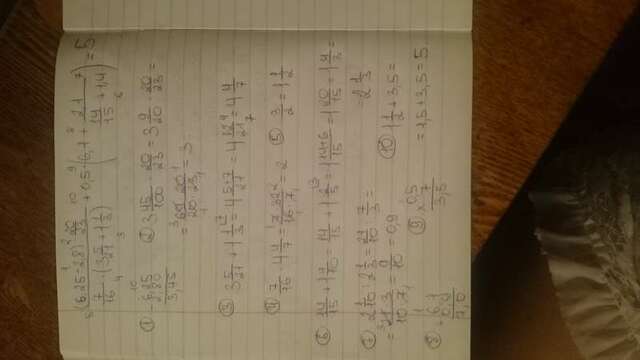 5 (6.25-2,8)·20/23 / 7/16·(3 5/21+1 1/3) + 0,5·(6,1+ 2.1 / 14/15+1,4) = 5
① -6,25 2,80 3,45 ② 3 45/100 · 20/23 = 3 9/20 · 20/23 =
= 69/20 · 20/23 = 3
③ 3 5/21 + 1 1/3 = 4 5+7/21 = 4 12/21 = 4 4/7
4 7/16 · 4 4/7 = 7/16 · 32/7 = 2 ⑤ 3/2 = 1 1/2
⑥ 14/15 + 1 4/10 = 14/15 + 1 2/5 = 1 14+6/15 = 1 20/15 = 1 4/3 =
= 2 1/3
2 1/10 : 2 1/3 = 21/10 : 7/3 =
= 21·3/10·7 = 9/10 = 0,9
⑩ 1 1/2 + 3,5 =
= 1,5+3,5 = 5
8 +6,1 0,9 7,0
⑨ ×0,5 7 3,5